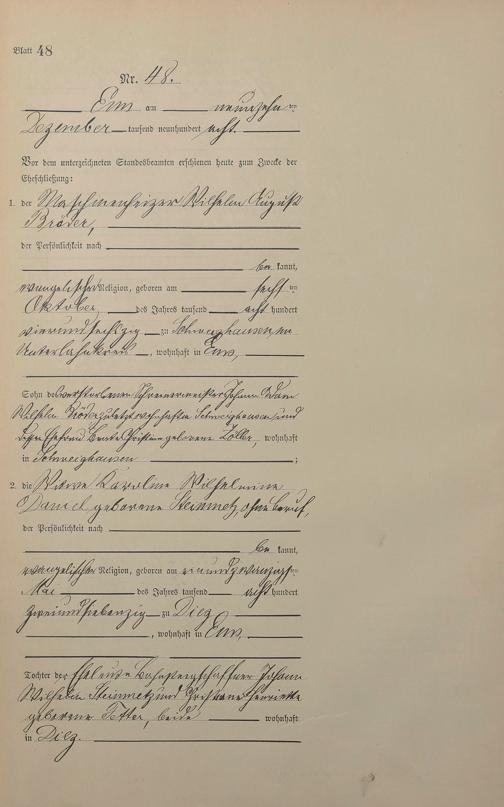 Blatt 48
Nr. 48.
Ems am neunzehnten
Dezember tausend neunhundert acht.
Vor dem unterzeichneten Standesbeamten erschienen heute zum Zwecke der
Eheschließung:
1. der Maschinenheizer Wilhelm August
Bröder,
der Persönlichkeit nach
be kannt,
evangelischer Religion, geboren am sechsten
Oktober des Jahres tausend acht hundert
vierundsechszig zu Schweighausen, im
Unterlahnkreis, wohnhaft in Ems,
Sohn des verstorbenen Schreinermeister Johann Adam
Wilhelm Bröder zuletzt wohnhaft in Schweighausen und
dessen Ehefrau Christine geborene Zöller, wohnhaft
in Schweighausen ;
2. die Witwe Karoline Wilhelmine
Daniel geborene Steinmetz, ohne Beruf,
der Persönlichkeit nach
be kannt,
evangelischer Religion, geboren am einundzwanzigsten
Mai des Jahres tausend acht hundert
zweiundsiebenzig zu Diez
, wohnhaft in Ems,
Tochter der Eheleute Johann
Wilhelm Steinmetz und Henriette
geborene beide wohnhaft
in Diez.